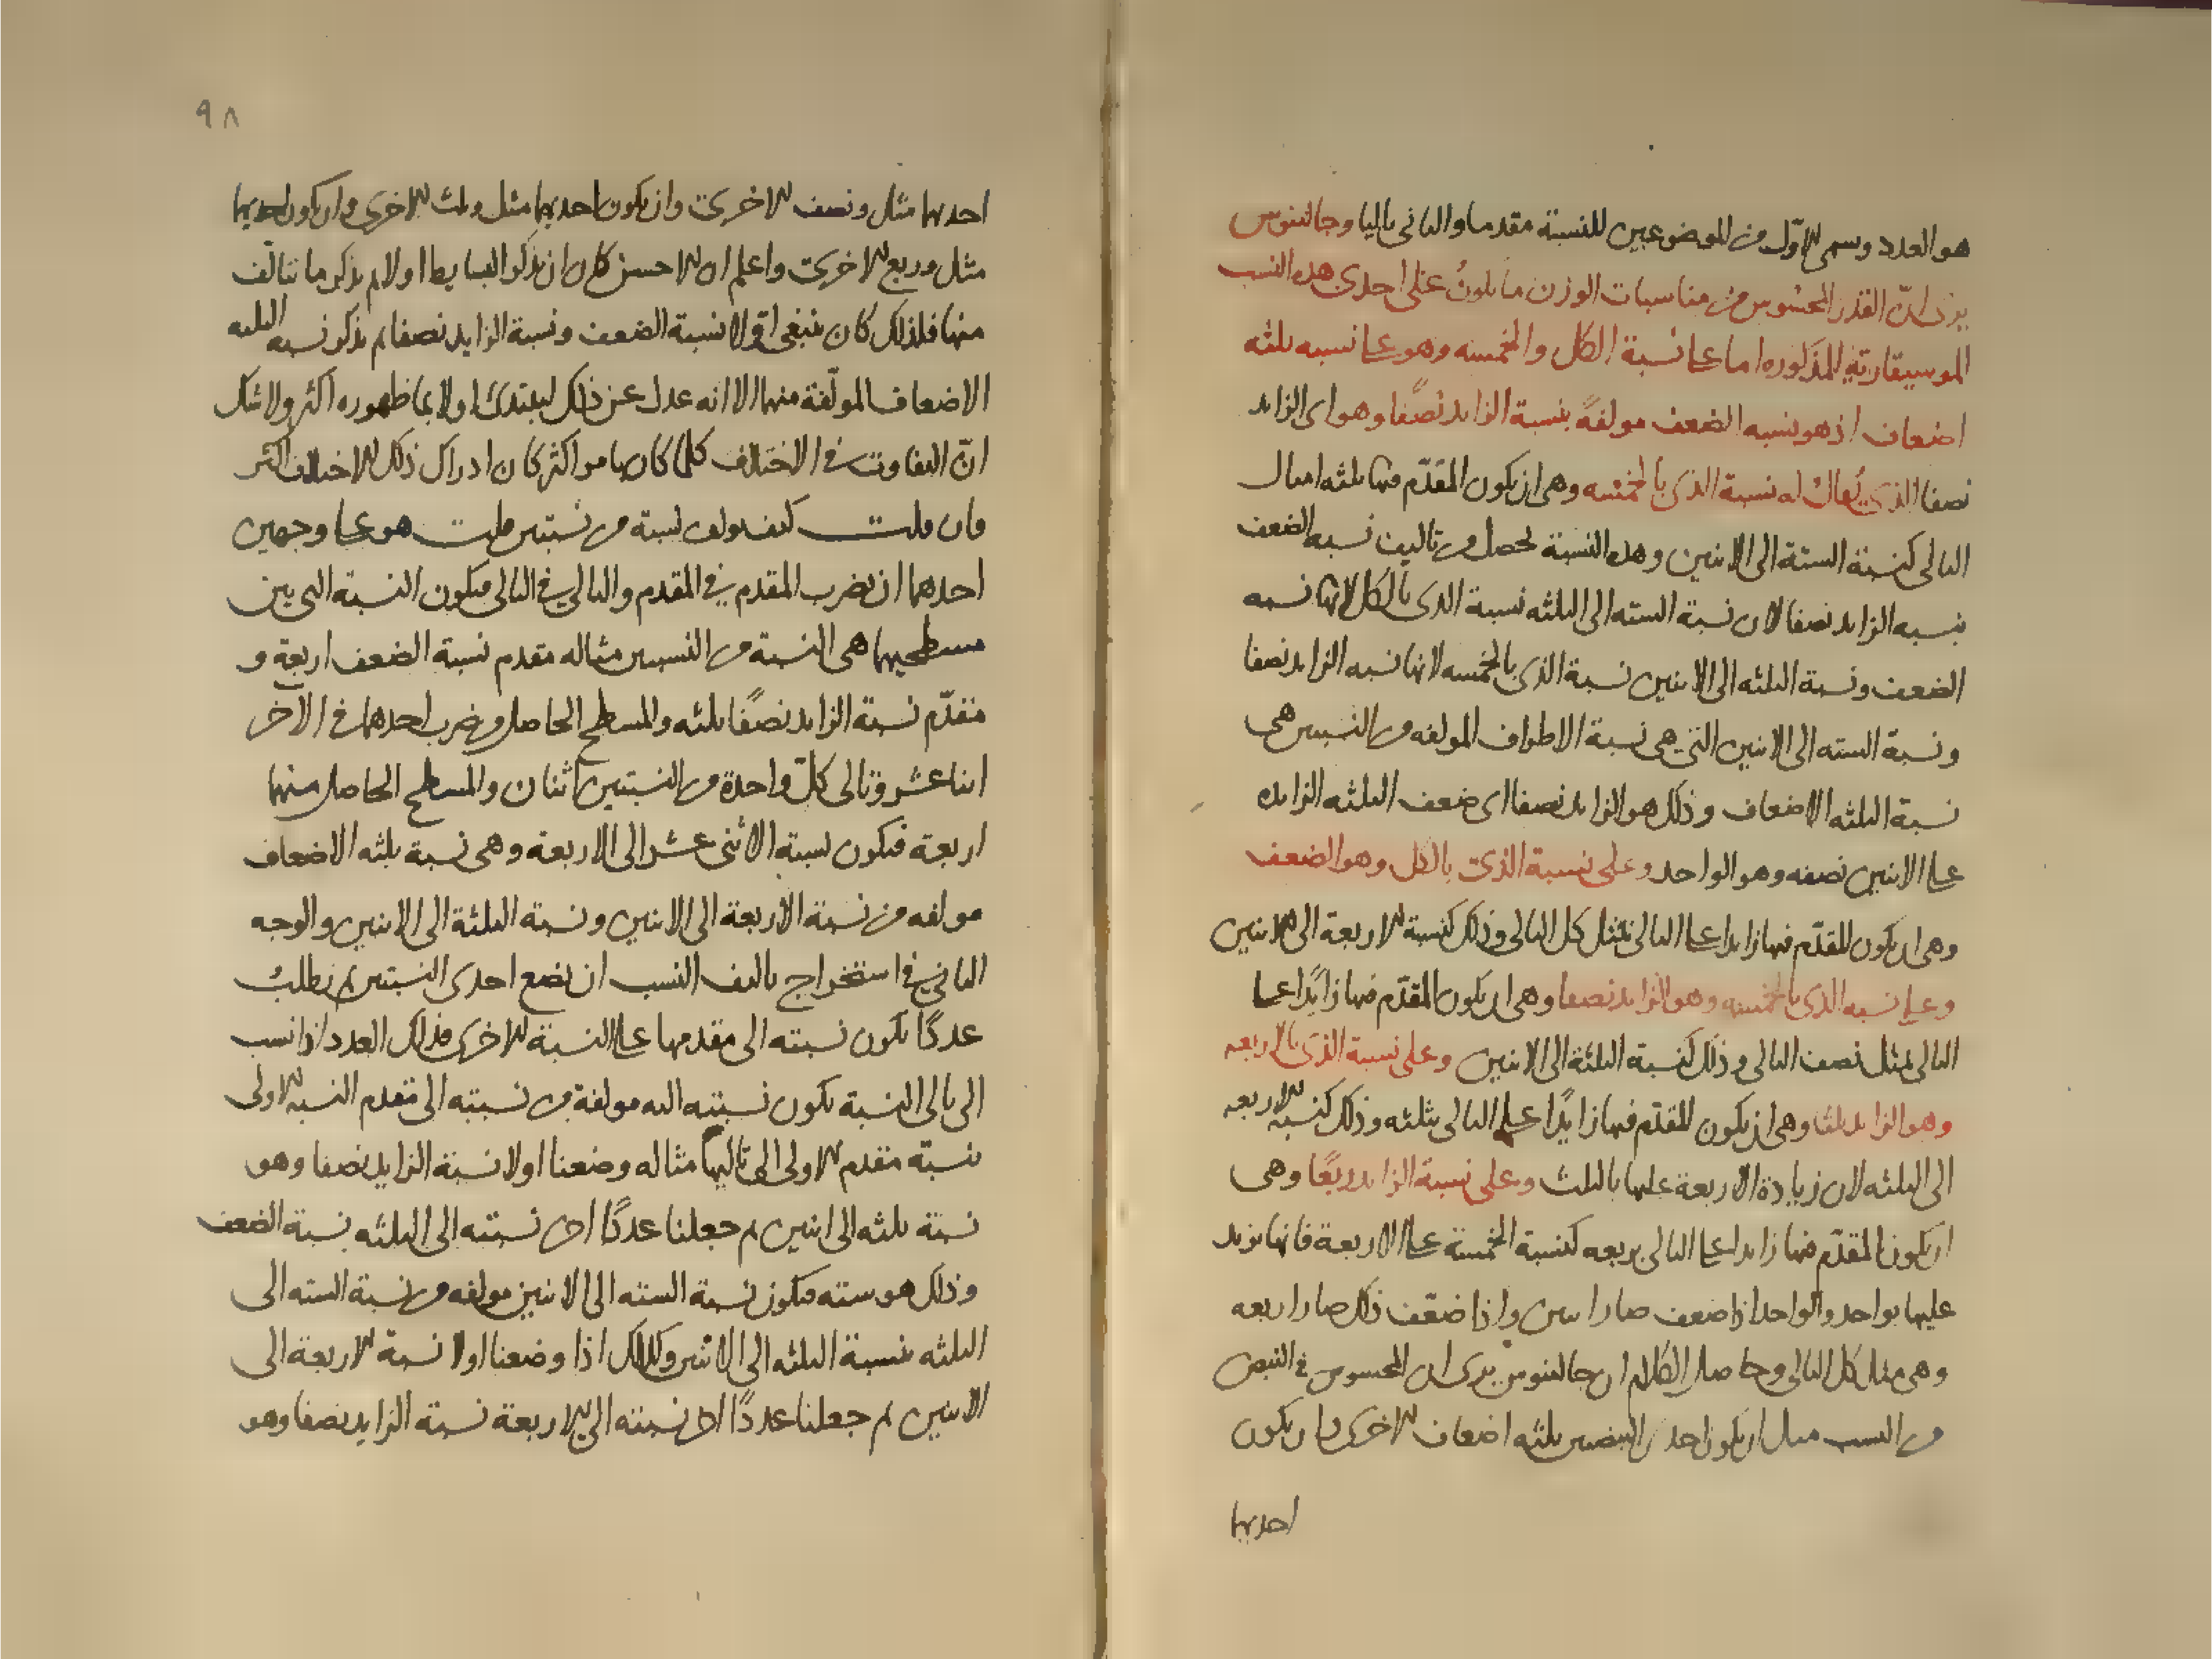 هو العدد ويسمى الاول من الموضوعين للنسبة مقدما والثانى تاليا وجالينوس
يرى ان القدر المحسوس من مناسبات الوزن ما يكون على احدى هذه النسب
الموسيقارية المذكوره اما على نسبة الكل والخمسه وهو على نسبه ثلثه
اضعاف اذ هو نسبه الضعف مولفة بنسبة الزايد نصفا وهو اى الزايد
نصفا الذى يقال له نسبة الذى بالخمسه وهى ان يكون المقدم فيها ثلثه امثال
التالى كنسبة الستة الى الاثنين وهذه النسبة تحصل من تاليف نسبه الضعف
بنسبه الزايد نصفا لان نسبة السته الى الثلثه نسبة الذى بالكل لانها نسبه
الضعف ونسبة الثلثه الى الاثنين نسبة الذى بالخمسه لانها نسبه الزايد نصفا
ونسبة السته الى الاثنين التى هى نسبة الاطراف المولفه من النسبتين هى
نسبة الثلثه الاضعاف وذلك هو الزايد نصفا اى ضعف الثلثه الزايده
على الاثنين نصفه وهو الواحد وعلى نسبة الذى بالكل وهو الضعف
وهى ان يكون المقدم فيها زايدا على التالى بمثل كل التالى وذلك كنسبة الاربعة الى الاثنين
وعلى نسبه الذى بالخمسه وهو الزايد نصفا وهى ان يكون المقدم فيها زايدا على
التالى بمثل نصف التالى وذلك كنسبة الثلثة الى الاثنين وعلى نسبة الذى بالاربعه
وهو الزايد ثلثا وهى ان يكون المقدم فيها زايدا على التالى بثلثه وذلك كنسبه الاربعه
الى الثلثه لان زيادة الاربعة عليها بالثلث وعلى نسبة الزايد ربعا وهى
ان يكون المقدم فيها زايدا على التالى بربعه كنسبة الخمسة على الاربعة فانها تزيد
عليها بواحد والواحد اذا ضعف صار اثنين واذا ضعف ذلك صار اربعه
وهى مثل كل التالى وحاصل الكلام ان جالينوس يرى ان المحسوس فى النبض
من النسب مثل ان يكون احد النبضين ثلثه اضعاف الاخرى وان يكون
احديهما
٩٨
احديهما مثل ونصف الاخرى وان يكون احديهما مثل وثلث الاخرى وان يكون احديهما
مثل وربع الاخرى واعلم ان الاحسن كان ان يذكر البسايط اولا ثم يذكر ما تتالف
منها فلذلك كان ينبغى اولا نسبة الضعف ونسبة الزايد نصفا ثم يذكر نسبه الثلثه
الاضعاف المولفة منهما الا انه عدل عن ذلك ليبتدئ اولا بما ظهوره اكثر ولا شك
ان التفاوت فى الاختلاف كلما كان بامور اكثر كان ادراك ذلك الاختلاف اكثر
فان قلت كيف يولف نسبة من نسبتين قلت هو على وجهين
احدهما ان يضرب المقدم فى المقدم والتالى فى التالى فيكون النسبة التى بين
مسطحيهما هى النسبة من النسبتين مثاله مقدم نسبة الضعف اربعة و
مقدم نسبة الزايد نصفا ثلثه والمسطح الحاصل من ضرب احدهما فى الاخر
اثنا عشر وتالى كل واحدة من النسبتين اثنان والمسطح الحاصل منهما
اربعة فيكون نسبة الاثنى عشر الى الاربعة وهى نسبة ثلثه الاضعاف
مولفه من نسبة الاربعة الى الاثنين ونسبة الثلثة الى الاثنين والوجه
الثانى فى استخراج تاليف النسب ان نضع احدى النسبتين ثم نطلب
عددا تكون نسبته الى مقدمها على النسبة الاخرى فذلك العدد اذا نسب
الى تالى النسبة تكون نسبته اليه مولفة من نسبته الى مقدم النسبه الاولى
بنسبة مقدم الاولى الى تاليها مثاله وضعنا اولا نسبة الزايد نصفا وهو
نسبة ثلثه الى اثنين ثم جعلنا عددا اخر نسبته الى الثلثه نسبة الضعف
وذلك هو سته فيكون نسبة السته الى الاثنين مولفه من نسبة السته الى
الثلثه بنسبة الثلثه الى الاثنين وكذلك اذا وضعنا اولا نسبة الاربعة الى
الاثنين ثم جعلنا عددا اخر نسبته الى الاربعة نسبة الزايد نصفا وهو